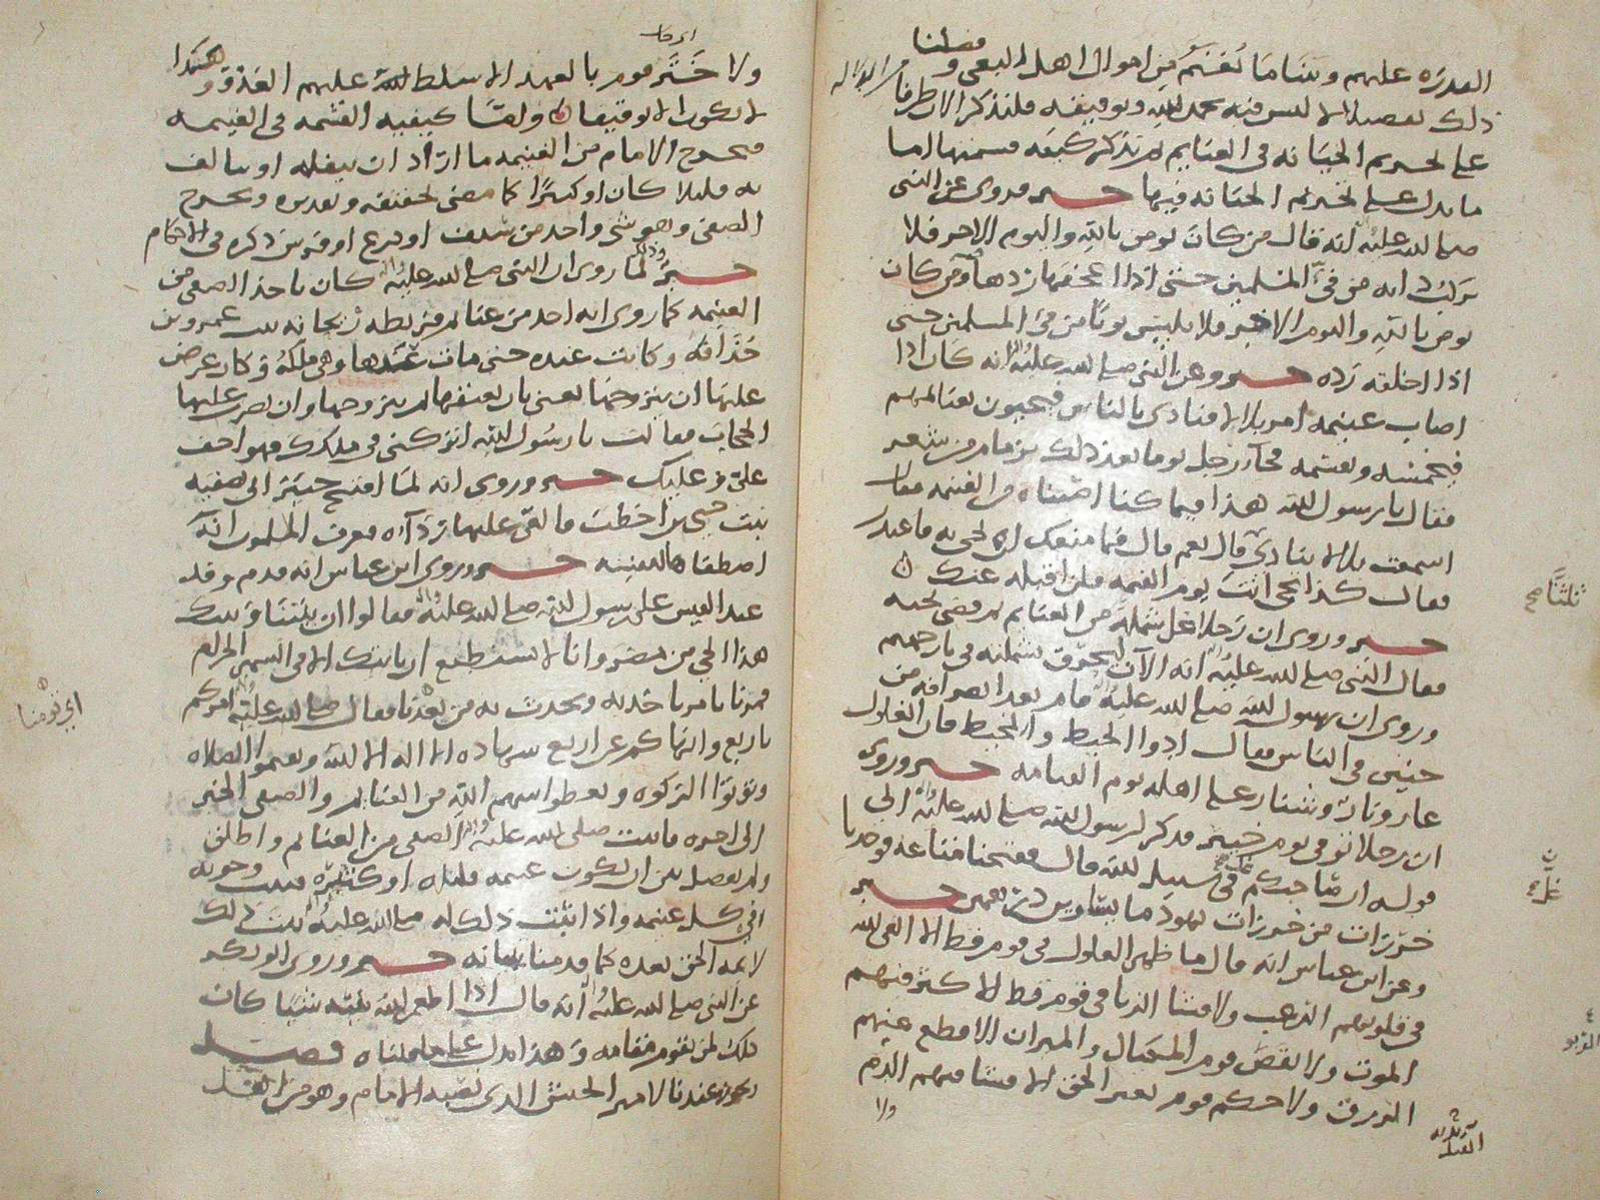 القدره عليهم وبينا ما يُغنم من اموال اهل البغي وفصلنا
ذلك تفصيلا لا لبس فيه بحمد الله وتوفيقه فلنذكر الان طرفا من الدلاله
على تحريم الخيانه في الغنايم ثم نذكر كيفيه قسمتها اما
ما يدل على تحريم الخيانه فيها خبر وروي عن النبي
صلى الله عليه وآله انه قال من كان يومن بالله واليوم الاخر فلا
يركب دابه من في المسلمين حتى اذا اعجفها ردها ومن كان
يومن بالله واليوم الاخر فلا يلبس ثوبا من في المسلمين حتى
اذا اخلقه رده خبر وعن النبي صلى الله عليه وآله انه كان اذا
اصاب غنيمه امر بلالا فنادى بالناس فيجيون بغنايمهم
فيخمسه ويقسمه فجاء رجل يوما بعد ذلك بزمام من شعر
فقال يا رسول الله هذا فيما كنا اصبناه من الغنيمه فقال
اسمعت بلالا ينادي قال نعم قال فما منعك ان تجي به فاعتذر
فقال كذا تجي انت يوم القيمه فلن اقبله عنك
ثلثا صح
خبر وروي ان رجلا غل شمله من الغنايم ثم قضى نحبه
فقال النبي صلى الله عليه وآله انه الآن ليحرق بشملته في نار جهنم
وروي ان رسول الله صلى الله عليه وآله قام بعد انصرافه من
حنين في الناس فقال ادوا الخيط والمخيط فان الغلول
عار ونار وشنار على اهله يوم القيامه خبر وروي
ان رجلا توفي يوم خيبر فذكر لرسول الله صلى الله عليه وآله الى
قوله ان صاحبكم غل في سبيل الله قال ففتحنا متاعه فوجدنا
خرزات من خرزات يهود ما يساوين درهمين خبر
وعن ابن عباس انه قال ما ظهر الغلول في قوم قط الا القى الله
في قلوبهم الرعب ولا فشا الزنا في قوم قط الا كثر فيهم
الموت ولا نقص قوم المكيال والميزان الا قطع عنهم
الرزق ولا حكم قوم بغير الحق الا فشا فيهم الدم
ولا
ولا ختر قوم بالعهد الا سلط الله عليهم العدو وهكذا
لا يكون الا توقيفا ولقسا كيفيه القسمه في الغنيمه
فيخرج الامام من الغنيمه ما اراد ان ينفله او يتالف
به قليلا كان او كثيرا كما مضى تحقيقه وتقديره ويخرج
الصفي وهو شي واحد من سيف او درع او فرس ذكره في الاحكام
خبر وذلك لما روي ان النبي صلى الله عليه وآله كان ياخذ الصفي من
الغنيمه كما روي انه اخذ من غنايم قريظه ريحانه بنت عمرو بن
خذافه وكانت عنده حتى مات عندها وهي ملكه وكان عرض
عليها ان يتزوجها يعني بان يعتقها ثم يتزوجها وان يضرب عليها
الحجاب فقالت يا رسول الله اتركني في ملكك فهو اخف
علي وعليك خبر وروي انه لما افتتح خيبر الى صفيه
بنت حيي بن اخطب فالقى عليها رداءه فعرف المسلمون انه
اصطفاها لنفسه خبر وروى ابن عباس انه قدم وفد
عبد القيس على رسول الله صلى الله عليه وآله فقالوا ان بيننا وبينك
هذا الحي من مضر وانا لا نستطيع ان ناتيك الا في الشهر الحرام
فمرنا بامر ناخذ به ونحدث به من بعدنا فقال صلى الله عليه وآله آمركم
باربع وانهاكم عن اربع شهاده الا اله الا الله وتقيموا الصلاه
وتوتوا الزكوه وتعطوا سهم الله من الغنايم والصفي الخبر
الى اخره فاثبت صلى الله عليه وآله الصفي من الغنايم واطلق
ولم يفصل بين ان يكون غنيمه قليله او كثيره فثبت وجوبه
في كل غنيمه واذا ثبت ذلك له صلى الله عليه وآله ثبت ذلك
لايمه الحق بعده كما قدمنا بيانه خبر وروى ابو بكر
عن النبي صلى الله عليه وآله انه قال اذا اطعم الله نبيه شيا كان
ذلك لمن يقوم مقامه وهذا يدل على ما قلناه فصل
ويجوز عندنا لامير الجيش الذي نصبه الامام وهو من اهل